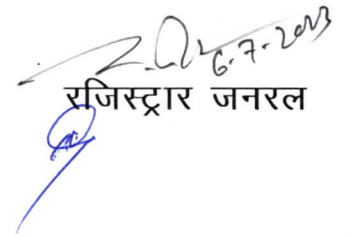 6.7.2023
रजिस्ट्रार जनरल